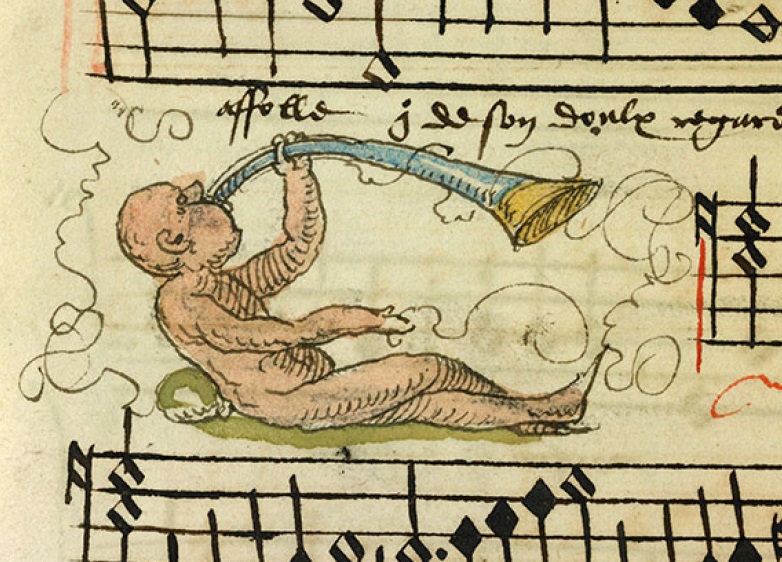 affolle j de son doulx regard